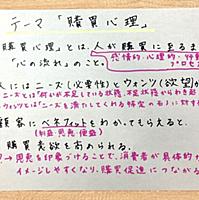 テーマ 「購買心理」
購買心理」とは、人が購買に至るま
「心の流れ」のこと。
感情的・心理的・行動
プロセ
人にはニーズ(必要性)とウォンツ(欲望)が
ニーズとは「何かが不足している状態、不足状態からわき起
ウォンツとは「ニーズを満たしてくれる特定のものに対す
顧客にベネフィットをわかってもらえると、
(利益・恩恵・便益)
購買意欲を高められる。
→ 恩恵を印象づけることで、消費者が具体的な
イメージしやすくなり、購買促進につながる